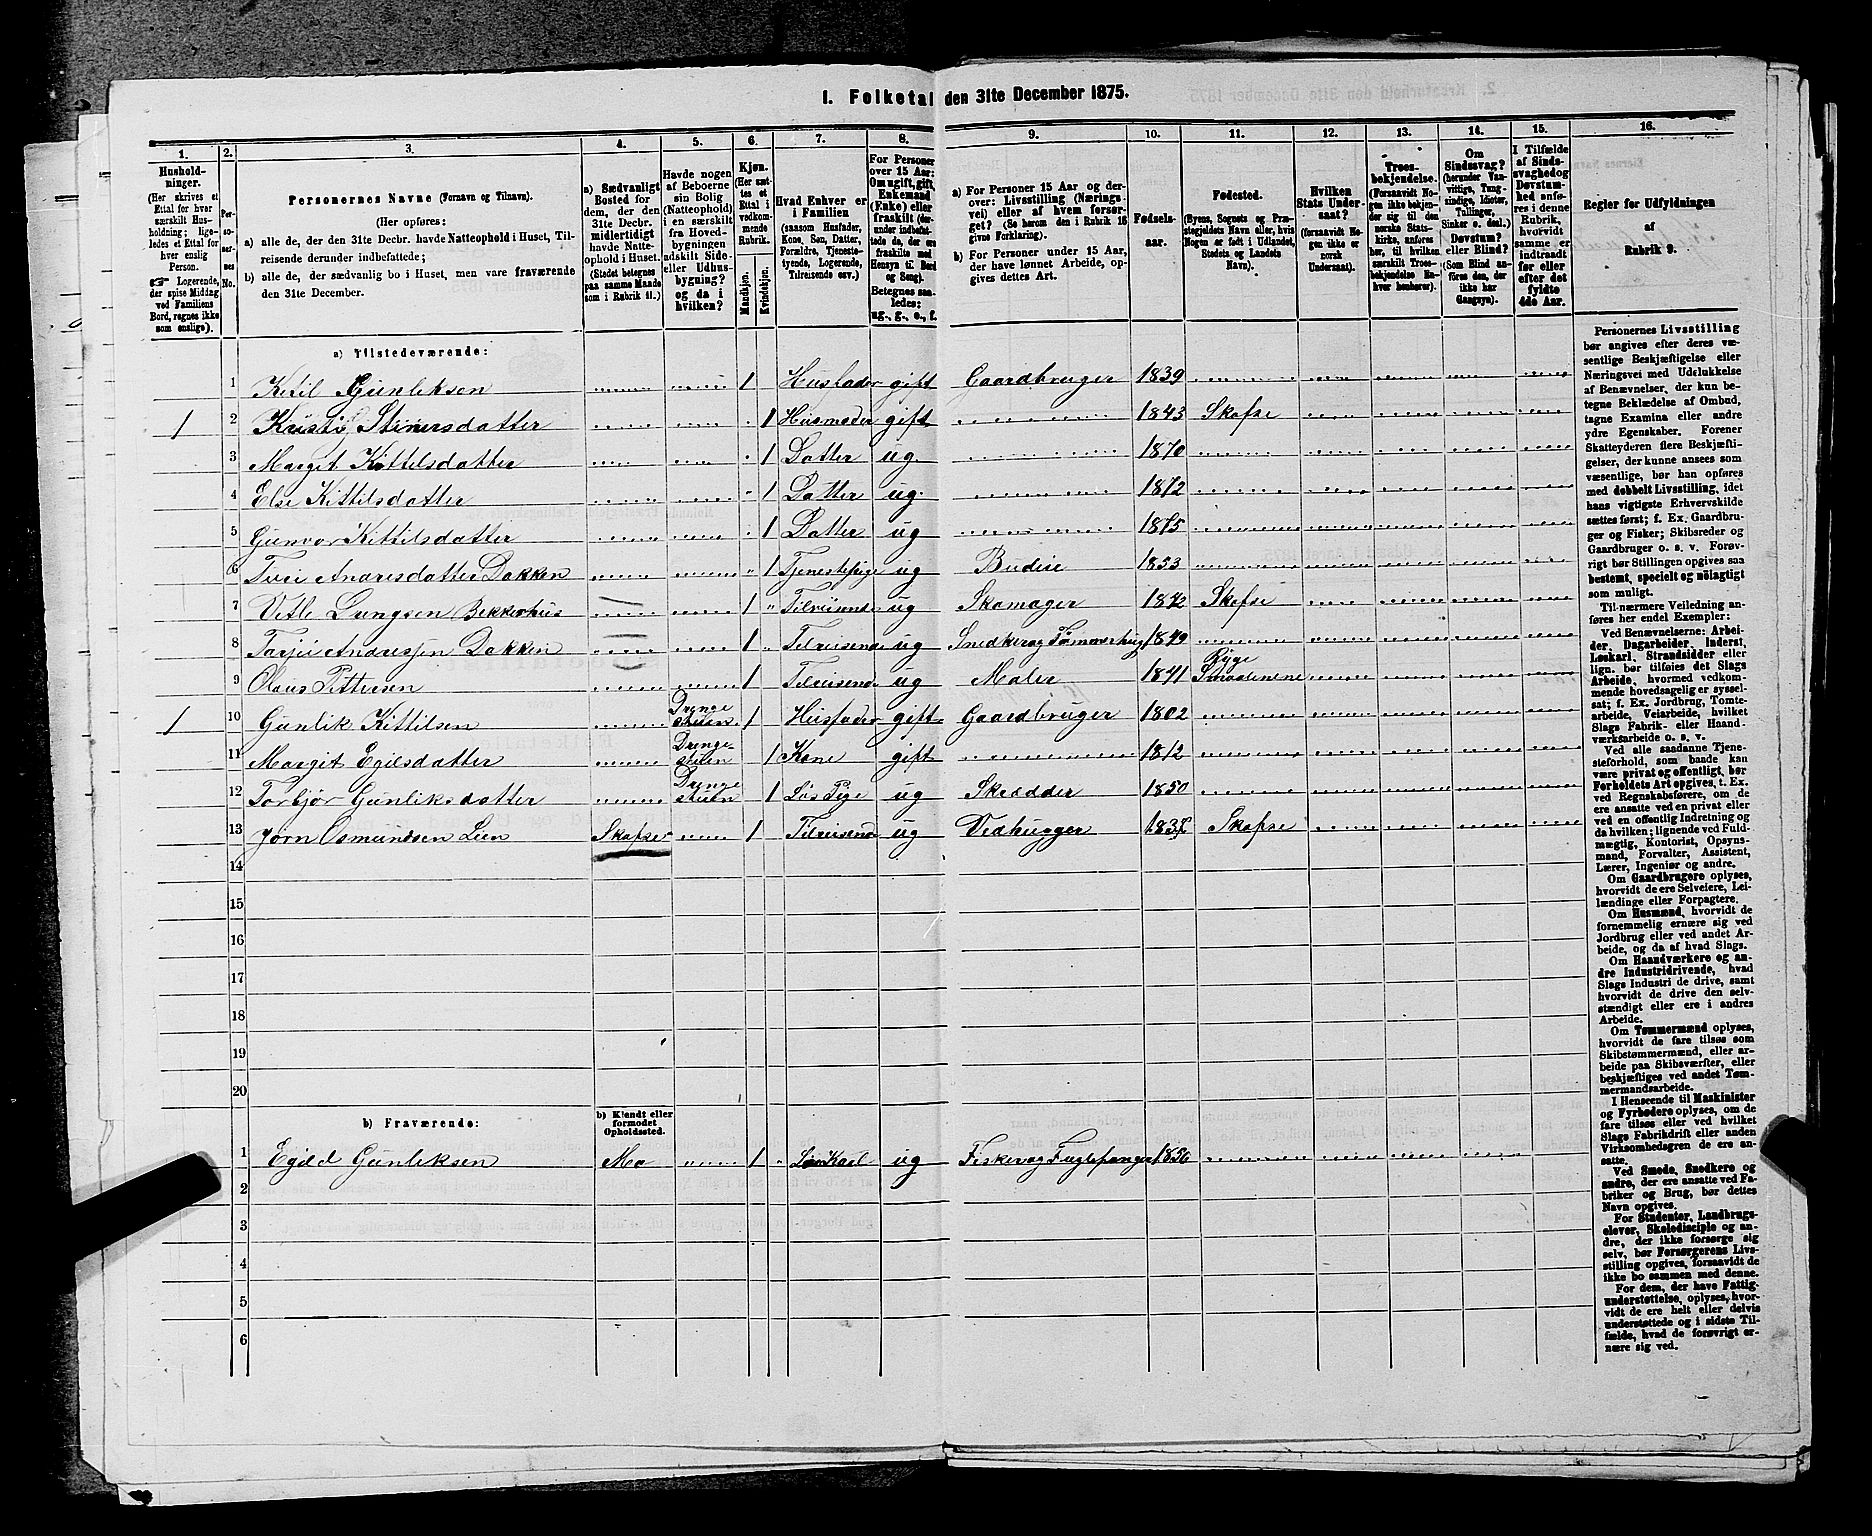 I. Folketal den 31te December 1875.
1.
2.
3.
4.
5.
6.
7.
8.
9.
10.
11.
12.
13.
14.
15.
16.
Husholdninger.
(Her skrives et
Ettal for hver
særskilt Husholdning;
ligeledes et Ettal for
hver enslig
Person.
☞ Logerende,
der spise Middag
ved Familiens
Bord, regnes ikke
som enslige).
Personernes
No.
Personernes Navne (Fornavn og Tilnavn).
(Her opføres:
a) alle de, der den 31te Decbr. havde Natteophold i Huset, Tilreisende derunder indbefattede;
b) alle de, der sædvanlig bo i Huset, men vare fraværende
den 31te December.
a) Sædvanligt
Bosted for
dem, der den
31te Decbr.
midlertidigt
havde Natteophold i Huset.
(Stedet betegnes
paa samme Maade
som i Rubrik 11.)
Havde nogen
af Beboerne
sin Bolig
(Natteophold)
i en særskilt
fra Hovedbygningen
adskilt Side- eller Udhusbygning?
og da i
hvilken?
Kjøn.
(Her sættes et
Ettal i
vedkommende
Rubrik.)
Mandkjøn.
Kvindekjøn.
Hvad Enhver er
i Familien
(saasom Husfader,
Kone, Søn, Datter,
Forældre, Tjenestetyende, Logerende,
Tilreisende osv.)
For Personer
over 15 Aar:
Om ugift, gift,
Enkemand
(Enke) eller
fraskilt (derunder indbefattede da, der ere
fraskilte med
Hensyn til Bord
og Seng).
Betegnes saaledes:
ug., g., e., f.
a) For Personer 15 Aar og derover: Livsstilling (Næringsvei) eller af hvem forsørget? (Se herom den i Rubrik 16
givne Forklaring).
b) For Personer under 15 Aar,
der have lønnet Arbeide, opgives dettes Art.
Fødselsaar.
Fødested.
(Byens, Sognets og Præstegjeldets Navn eller, hvis
Nogen er født i Udlandet,
Stedets og Landets
Navn).
Hvilken
Stats Undersaat?
(forsaavidt Nogen ikke er
norsk
Undersaat).
Troesbekjendelse.
(Forsaavidt Nogen ikke bekjender sig til den
norske Statskirke, anføres
her, til hvilken
særskilt Troesbekjendelse Enhver henhører).
Om
Sindssvag?
(herunder Vanvittige, Tungsindige, Idioter,
Tullinger,
Sinker o. desl.)
Døvstum?
eller Blind?
(Som Blind anføres den, der
ikke har
Gangsyn).
I Tilfælde
af Sindssvaghed og
Døvstumhed anføres i denne
Rubrik,
hvorvidt
samme er
indtraadt
før eller
efter det
fyldte
4de Aar.
Regler for Udfyldningen
af
Rubrik 9.
a) Tilstedeværende:
1 Ketil Gunleksen Husfader gift Gaardbruger 1839
1 2 Kristi Steinersdatter 1 Husmoder gift 1843 Skafse
3 Margit Kittilsdatter 1 Datter ug. 1870
4 Else Kittilsdatter 1 Datter ug. 1872
5 Gunvor Kittilsdatter 1 Datter ug 1875
6 Turi Andresdatter Dokken 1 Tjenestepige ug Budeie 1853
7 Vetle Dungsen Bekkerhus 1 Tilreisende ug Skomager 1842 Skafse
8 Tarjei Andresen Dokken 1 Tilreisende ug Snedker og Tømmerhug 1849
9 Olaus Pittersen 1 Tilreisende ug Maler 1841 Ryge Smaalenene
1 10 Gunlik Kittilsen Drengestuen 1 Husfader gift Gaardbruger 1802
11 Margit Egilsdatter Drengestuen 1 Kone gift 1812
12 Torbjør Gunliksdatter Drengestuen 1 Løs Pige ug Skrædder 1850
13 Jørn Osmundsen Lien Skafse 1 Tilreisende ug Vedhugger Skafse
14
15
16
17
18
19
20
b) Fraværende:
b) Kjendt eller
formodet
Opholdssted.
1 Egild Gunleksen Mo 1 Løskarl ug Fisker og Fuglefanger 1856
2
3
4
5
6
Personernes Livsstilling
bør angives efter deres væsentlige Beskjæftigelse eller
Næringsvei med Udelukkelse
af Benævnelser, der kun betegne Beklædelse af Ombud,
tagne Examina eller andre
ydre Egenskaber. Forener
Skatteyderen flere Beskjæftigelser, der kunne ansees som
væsentlige, bør han opføres
med dobbelt Livsstilling, idet
hans vigtigste Erhvervskilde
sættes først; f. Ex. Gaardbruger og Fisker; Skibsreder og
Gaardbruger o. s. v. Forøvrigt bør Stillingen opgives saa
bestemt, specielt og nøiagtigt
som muligt.
Til nærmere Veiledning anføres her endel Exempler:
Ved Benævnelserne: Arbeider, Dagarbeider, Inderst,
Løskarl, Strandsidder eller
lign. bør tilføies det Slags
Arbeide, hvormed vedkommende hovedsagelig er sysselsat; f. Ex. Jordbrug, Tomtearbeide, Veiarbeide, hvilket
Slags Fabrik- eller Haandværksarbeide o. s. v.
Ved alle saadanne Tjenesteforhold, som baade kan
være privat og offentligt, bør
Forholdets Art opgives, t. Ex.
ved Regnskabsførere, om de
ere ansatte ved en privat eller
ved en offentlig Indretning og
da hvilken; lignende ved Fuldmægtig, Kontorist, Opsynsmand, Forvalter, Assistent,
Lærer, Ingeniør og andre.
Om Gaardbrugere oplyses,
hvorvidt de ere Selveiere, Leilændinge eller Forpagtere.
Om Husmænd, hvorvidt de
fornemmelig ernære sig ved
Jordbrug eller ved andet Arbeide, og da af hvad Slags.
Om Haandværkere og andre Industridrivende, hvad
Slags Industri de drive, samt
hvorvidt de drive den selvstændigt eller ere i andres
Arbeide.
Om Tømmermænd oplyses,
hvorvidt de fare tilsøs som
Skibstømmermænd, eller arbeide paa Skibsværfter, eller
beskjæftiges ved andet Tømmermandsarbeide.
I Henseende til Maskinister
og Fyrbødere oplyses, om de
fare tilsøs eller ved hvilket
Slags Fabrikdrift eller anden
Virksomhedsgren de ere ansatte.
Ved Smede, Snedkere og
andre, der ere ansatte ved Fabriker og Brug, bør dettes
Navn opgives.
For Studenter, Landbrugselever, Skoledisciple og andre, der ikke forsørge sig
selv, bør Forsørgerens Livsstilling opgives, forsaavidt de
ikke bo sammen med denne.
For dem, der have Fattigunderstøttelse, oplyses, hvorvidt de ere helt eller delvis
understøttede og i sidste Tilfælde, hvad de forøvrigt ernære sig ved.